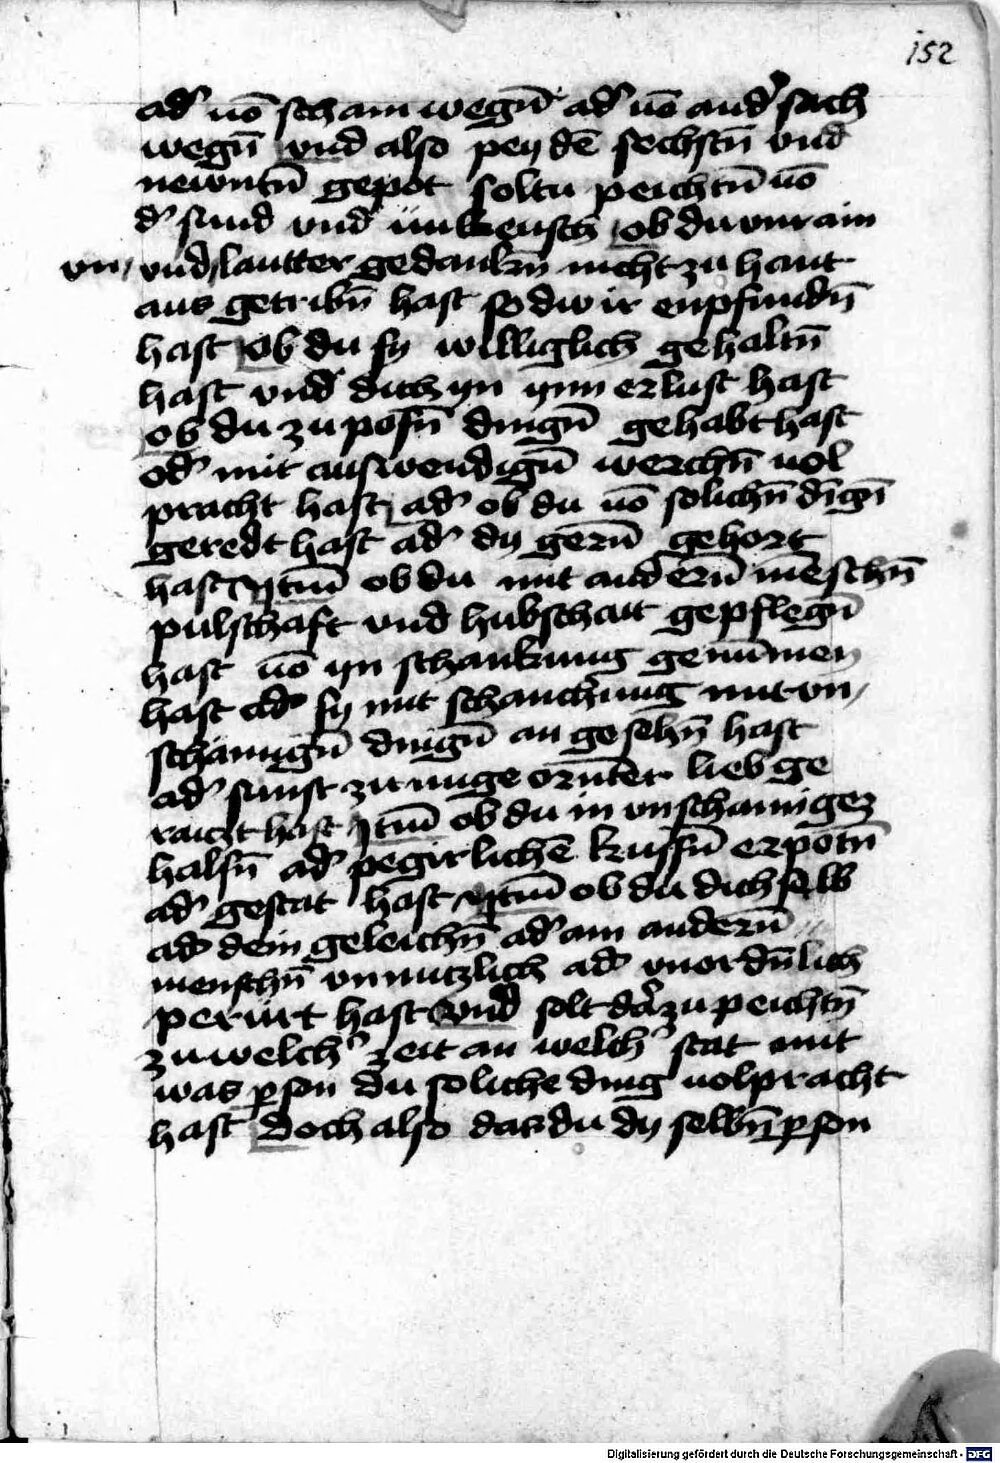 152
ad' uō scham wegn̄ ad' uō and' sach
wegn̄ vnd also pey dē sechstn̄ vnd
newntn̄ gepot soltu peichtn̄ uō
d' sund vnd unkeusch ob du vnrain
vn/ vnd/lautter gedankn̄ nicht zu hant
aus getribn̄ hast so dw ir enpfundn̄
hast Ob du sy williglich gehaltn̄
hast vnd dich yn ynn erlust hast
ob du zu posn̄ dingn̄ gehabt hast
od' mit auswendign̄ werchn̄ uol
pracht hast ad' ob du uō solichn̄ dīgn̄
geredt hast ad' dy gern̄ gehort
hast ytm̄ ob du mit andern̄ mēschn̄
pulschaft vnd hubschait gepflegn̄
hast uō yn schankung genūmen
hast ad' sy mit schanch'ung mit vn/
schāmign̄ dingn̄ an gesehn̄ hast
ad' sunst zu vngeornter lieb ge
raiczt hast Itm̄ ob du in vnschamigez
halsn̄ ad' pegirlichē kussn̄ erpotn̄
ad' gestat hast ytm̄ ob du dich selb
ad' dein geleichn̄ ad' ain andern̄
menschn̄ vnnutzlich ad' vnordn̄lich
perürt hast Vnd solt d'zu peichtn̄
zu welch' zeit an welch' stat mit
was pson du soliche ding uolpracht
hast Doch also das du dy selbn̄ pson
Digitalisierung gefördert durch die Deutsche Forschungsgemeinschaft - DFG